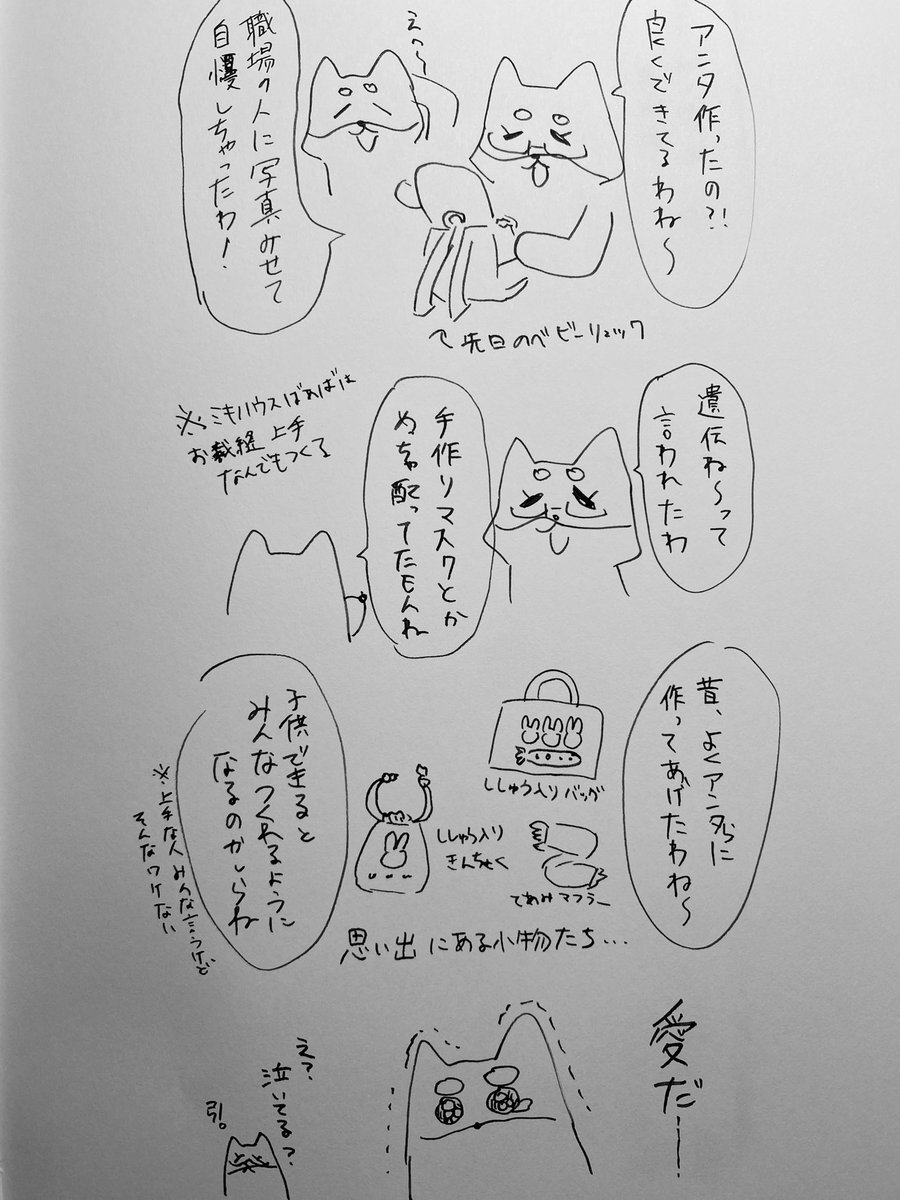 アンタ作ったの?!
良くできてるわね〜
えへ〜
職場の人に写真みせて
自慢しちゃったわ!
先日のベビーリュック
遺伝ね〜って
言われたわ
手作りマスクとか
めちゃ配ってたもんね
※ミキハウスばあばは
お裁縫上手
なんでもつくる
昔、よくアンタらに
作ってあげたわね〜
ししゅう入りバッグ
ししゅう入り
きんちゃく
てあみマフラー
思い出にある小物たち...
子供できると
みんなつくれるように
なるのかしらね
※上手な人みんな言うけど
そんなワケない
愛だー
え?
泣いてる?
引。